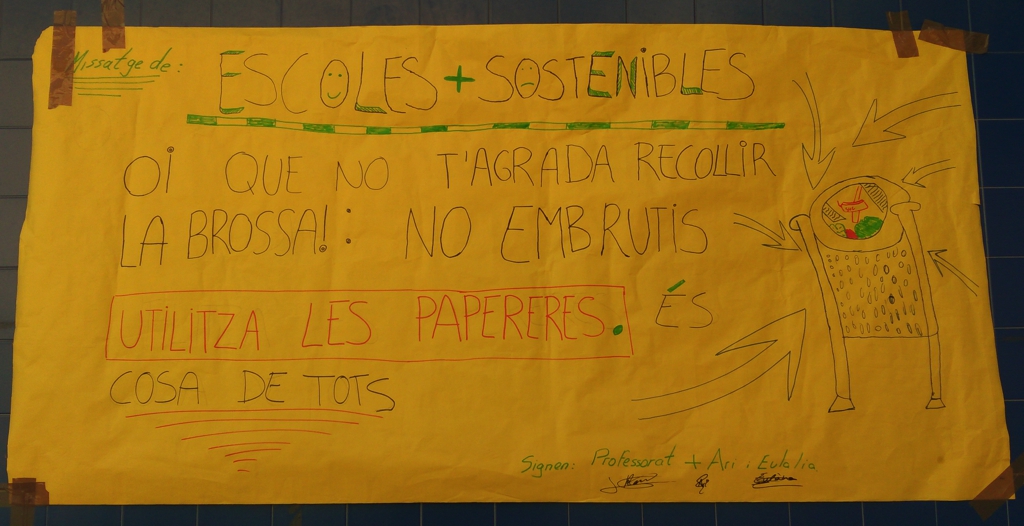 Missatge de:
ESCOLES + SOSTENiBLES
Oi QUE NO T'AGRADA RECOLLiR
LA BROSSA!: NO EMBRUTiS
UTiLiTZA LES PAPERERES. ÉS
COSA DE TOTS
Signen: Professorat + Ari i Eulàlia